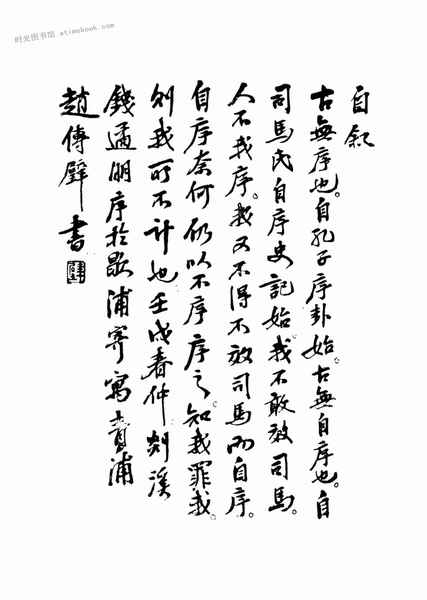 时光图书馆 atimebook.com
自叙
古無序也。自孔子序卦始。古無自序也。自
司馬氏自序史記始。我不敢效司馬。
人不我序。我又不得不效司馬而自序。
自序奈何仍以不序序之。知我罪我。
則我所不計也壬戌春仲剡溪
錢遹明序於歇浦寄寓黄浦
趙傳壁書